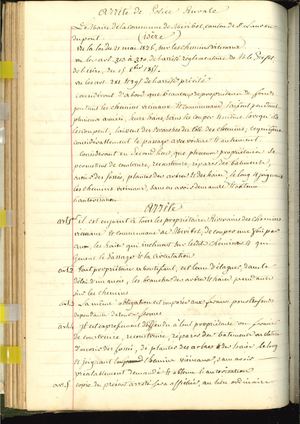 Arrêté de Police Rurale
Le Maire de la commune de Miribel, canton de
du pont (Isère)
Vu la loi du 21 mai 1836, sur les chemins vicinaux
Vu les art. 313 à 320 de l'arrêté réglementaire de M. le Préfet
de l'Isère, du 15
Vu les art. 290 et 291 de l'arrêté précité
Considérant d'abord que beaucoup de propriétaires de fonds
joutant les chemins vicinaux de la commune laissent pendant
plusieurs années, leurs haies sans les couper et même lorsqu'ils
les coupent, laissent des branches du côté des chemins, ce qui gêne
considérablement le passage à voitures et autrement
Considérant en second lieu, que plusieurs propriétaires se
permettent de construire, reconstruire, réparer des bâtiments,
des fossés, planter des arbres et des haies, le long et joignant
les chemins vicinaux, sans en avoir demandé et obtenu
l'autorisation
Arrête
art. 1er il est enjoint à tous les propriétaires Riverains des chemins
vicinaux de la commune de Miribel, de couper une fois par
an, les haies qui incluent sur lesdits chemins et qui
gênent le passage et la circulation
art. 2 Tout propriétaire est tenu d'élaguer, dans le
délai d'un mois, les branches des arbres et haies pendantes
sur les chemins
art. 3 La même obligation est imposée aux fermiers pour les fonds
dépendant de leurs fermes
art. 4 Il est expressément défendu à tout propriétaire ou fermier
de construire, reconstruire, réparer des bâtiments ou clôtures
d'ouvrir des fossés, de planter des arbres et des haies, le long
et joignant les chemins vicinaux, sans avoir
préalablement demandé et obtenu l'autorisation
art. 5 copie du présent arrêté sera affichée, au lieu ordinaire